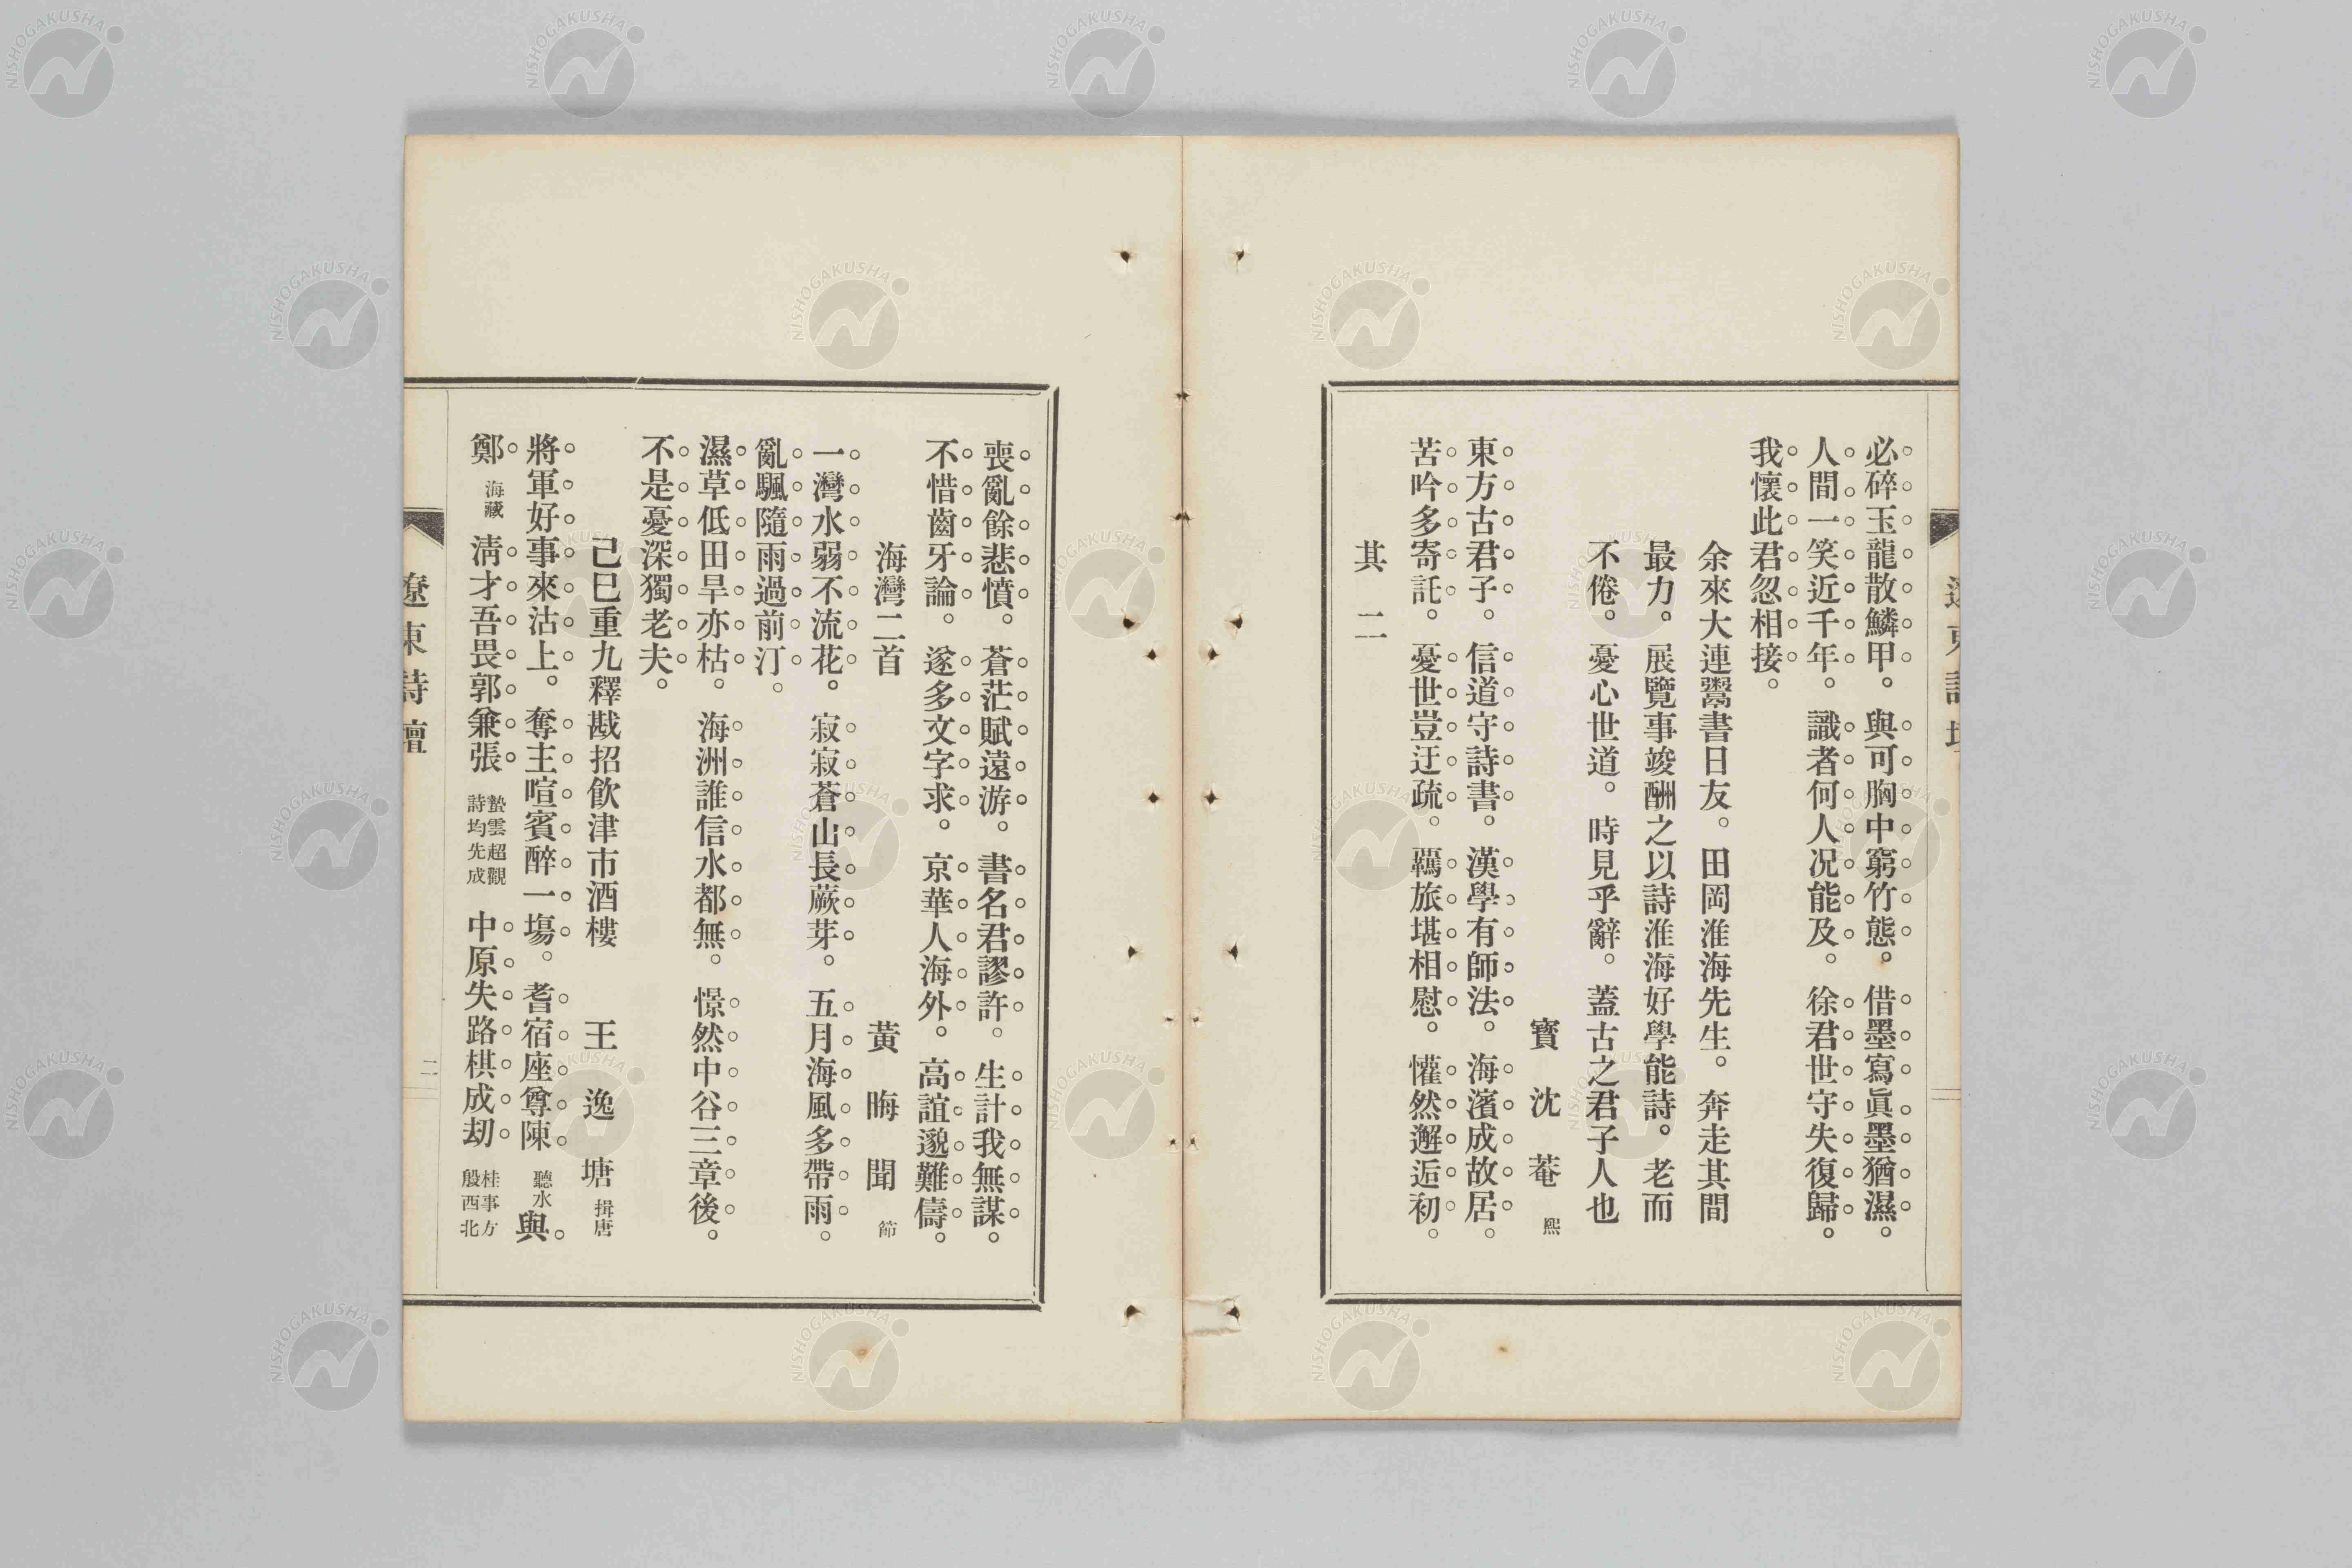 必碎玉龍散鱗甲。與可胸中窮竹態。借墨寫眞墨猶濕。
人間一笑近千年。識者何人况能及。徐君世守失復歸。
我懷此君忽相接。
余來大連鬻書日友。田岡淮海先生。奔走其間
最力。展覽事竣酬之以詩淮海好學能詩。老而
不倦。憂心世道。時見乎辭。蓋古之君子人也
寶沈菴 熙
東方古君子。信道守詩書。漢學有師法。海濱成故居。
苦吟多寄託。憂世豈迂疏。羈旅堪相慰。懽然邂逅初。
其二
喪亂餘悲憤。蒼茫賦遠游。書名君謬許。生計我無謀。
不惜齒牙論。遂多文字求。京華人海外。高誼邈難儔。
海灣二首 黄晦聞 節
一灣水弱不流花。寂寂蒼山長蕨芽。五月海風多帶雨。
亂颿隨雨過前汀。
濕草低田旱亦枯。海洲誰信水都無。憬然中谷三章後。
不是憂深獨老夫。
己巳重九釋戡招飲津市酒樓 王逸塘 揖唐
將軍好事來沽上。奪主喧賓醉一場。耆宿座尊陳 聽水 與
鄭 海藏 淸才吾畏郭兼張 蟄雲超觀 詩均先成 中原失路棋成刧 桂事方 殷西北
遼東詩壇
二
NISHOGAKUSHA